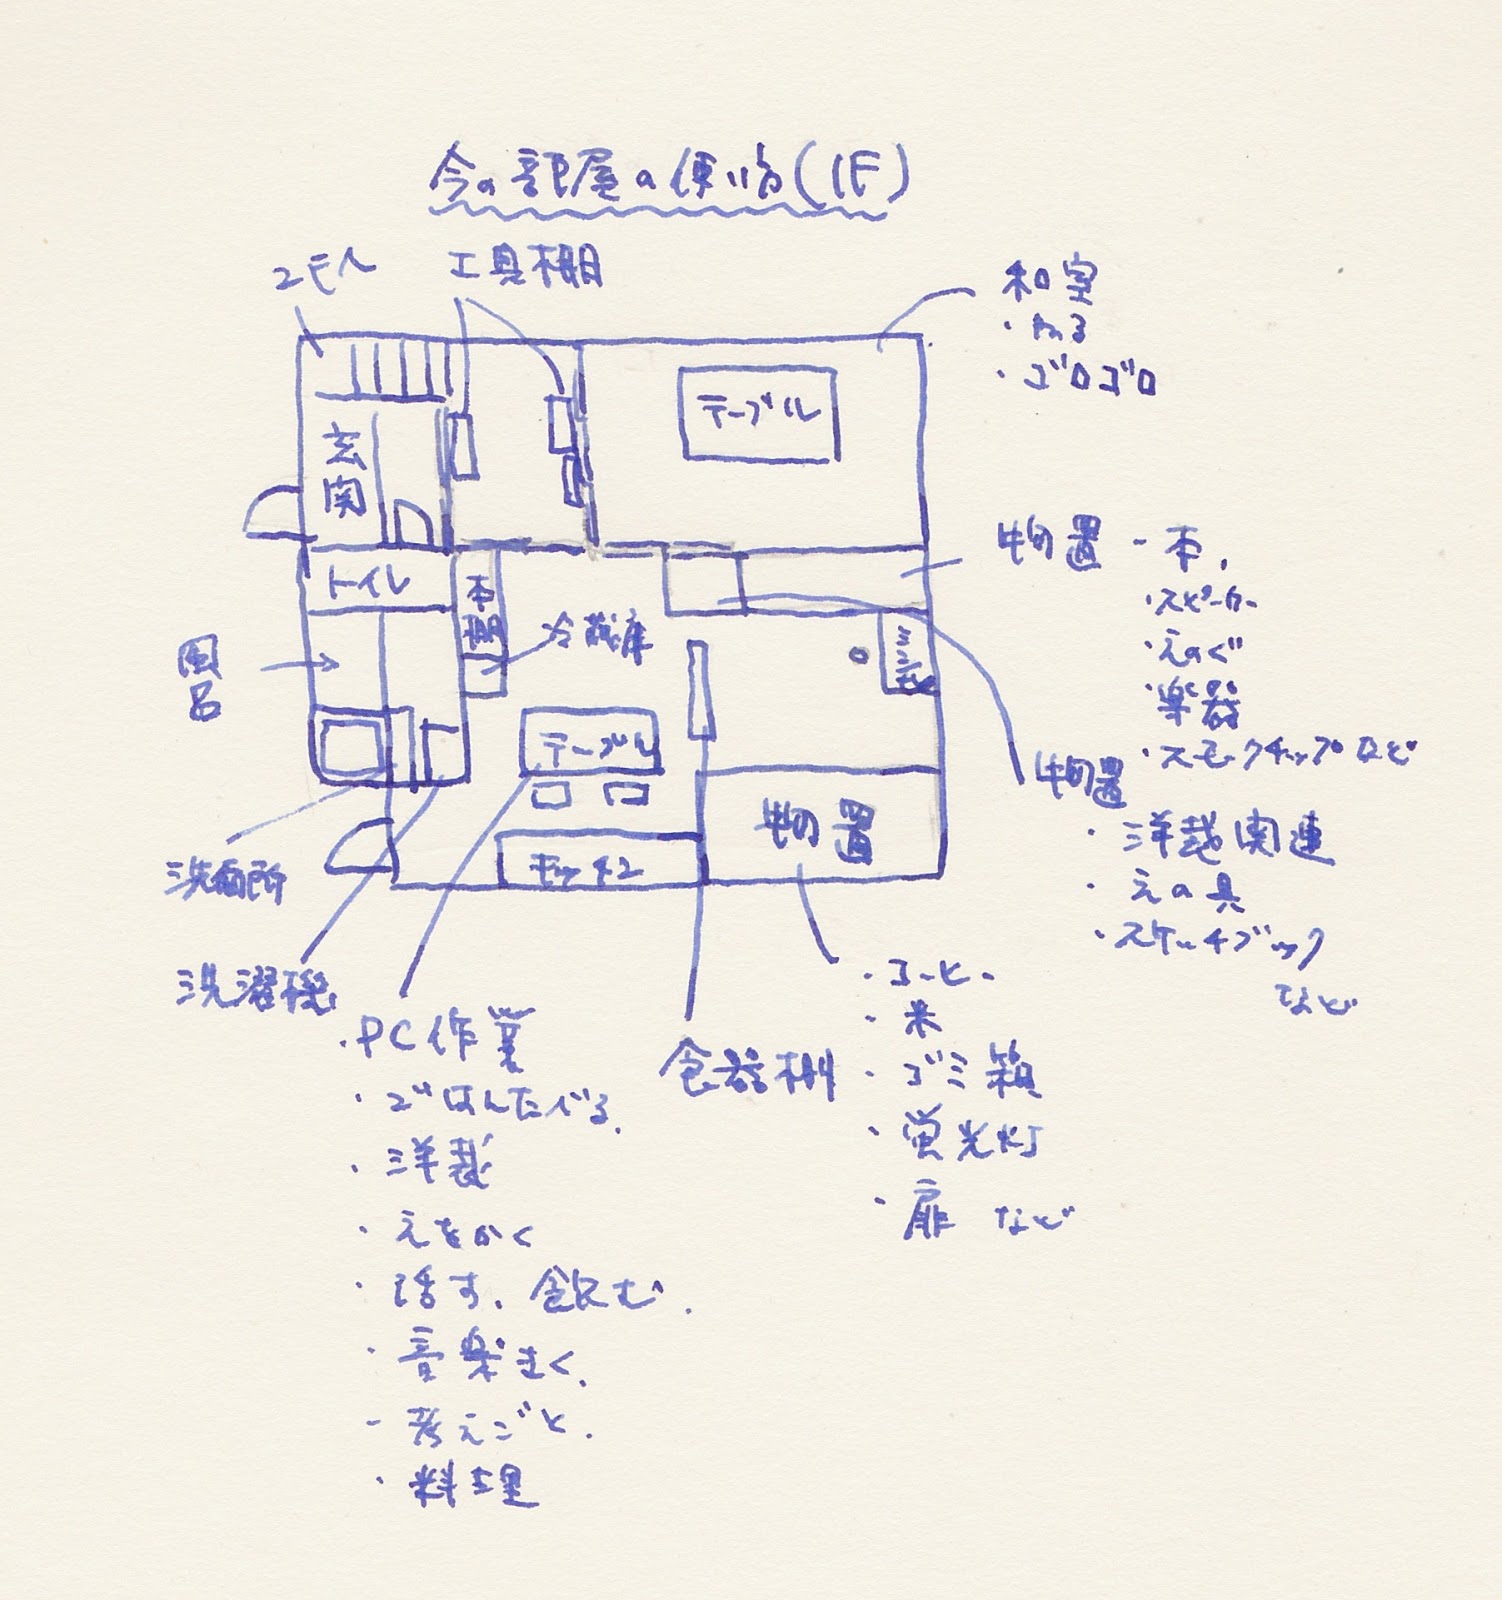 今の部屋の使い方(1F)
2Fへ
工具棚
和室
・ねる
・ゴロゴロ
テーブル
玄関
物置 - 布.
・スピーカー
・えのぐ
・楽器
・スモークチップなど
トイレ
本棚
冷蔵庫
風呂
ミシン
テーブル
物置
・洋裁関連
・えの具
・スケッチブック
など
物置
キッチン
洗面所
洗濯機
・PC作業
・ごはんたべる.
・洋裁
・えをかく
・話す、飲む.
・音楽きく.
- 考えごと.
・料理
食器棚
・コーヒー
・米
・ゴミ箱
・蛍光灯
・扉 など